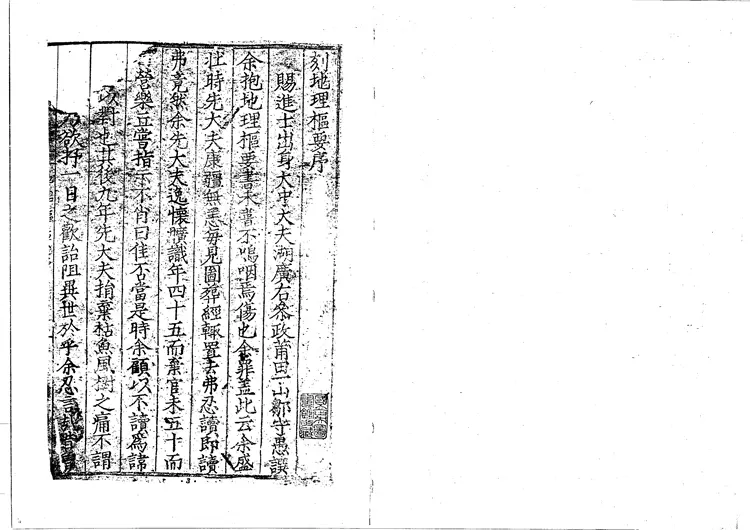 刻地理樞要序
賜進士出身大中大夫湖廣右叅政莆田一山鄒守愚譔
余抱地理樞要書未嘗不嗚咽焉傷也余罪盖此云余盛
壯時先大夫康疆無恙每見圖𦵏經輒置去弗忍讀即讀
弗竟然余先大夫逸懷曠識年四十五而棄官未五十而
營樂丘嘗指示不肖曰佳否當是時余顧以不讀為諱
對也其後九年先大夫捐棄枯魚風樹之痛不謂
欲捋一日之歡詒阻異世於乎余忍言